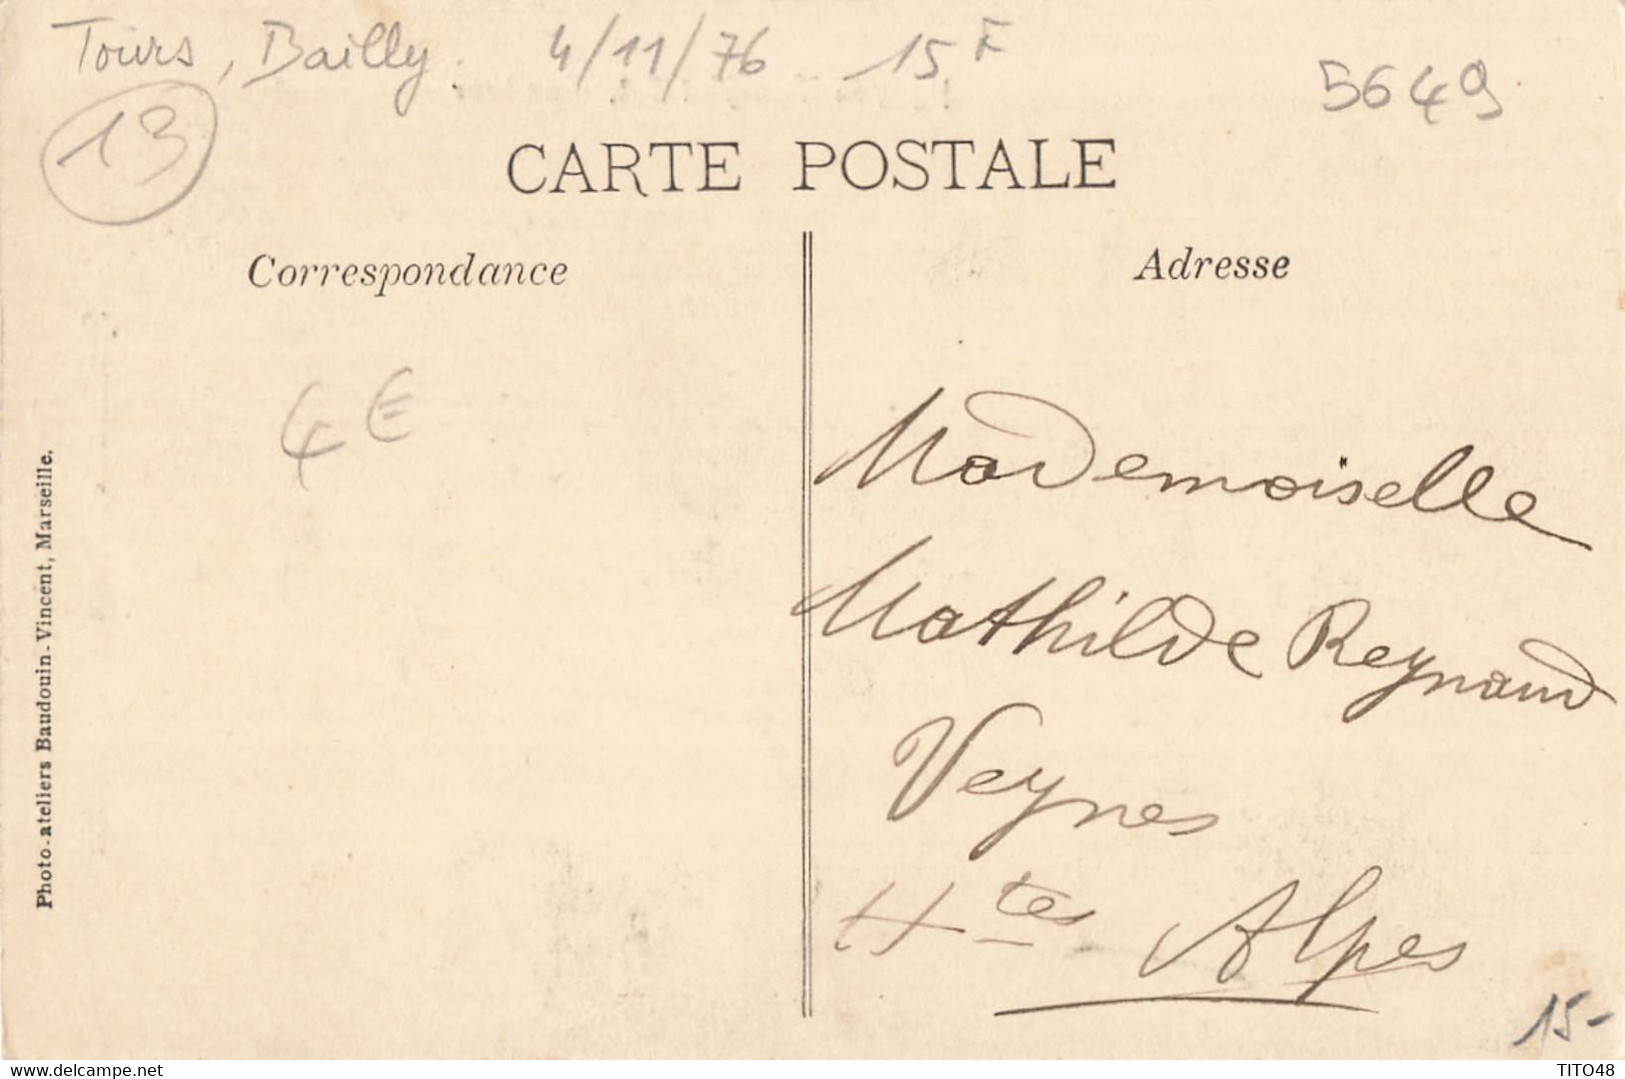 Tours, Bailly. 4/11/76 15 F
5649
13
CARTE POSTALE
Correspondance
Adresse
4 €
Photo-ateliers Baudouin-Vincent, Marseille.
Mademoiselle
Mathilde Reynaud
Veynes
Htes Alpes
15-
delcampe.net
TITO48